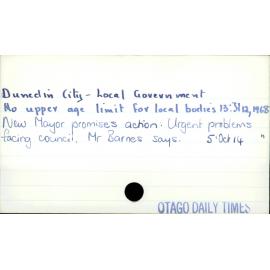 Dunedin City - Local Government
No upper age limit for local bodies 13: 12,1968
New Mayor promises action: Urgent problems
facing council, Mr Barnes says. 5: Oct 14 "
OTAGO DAILY TIMES